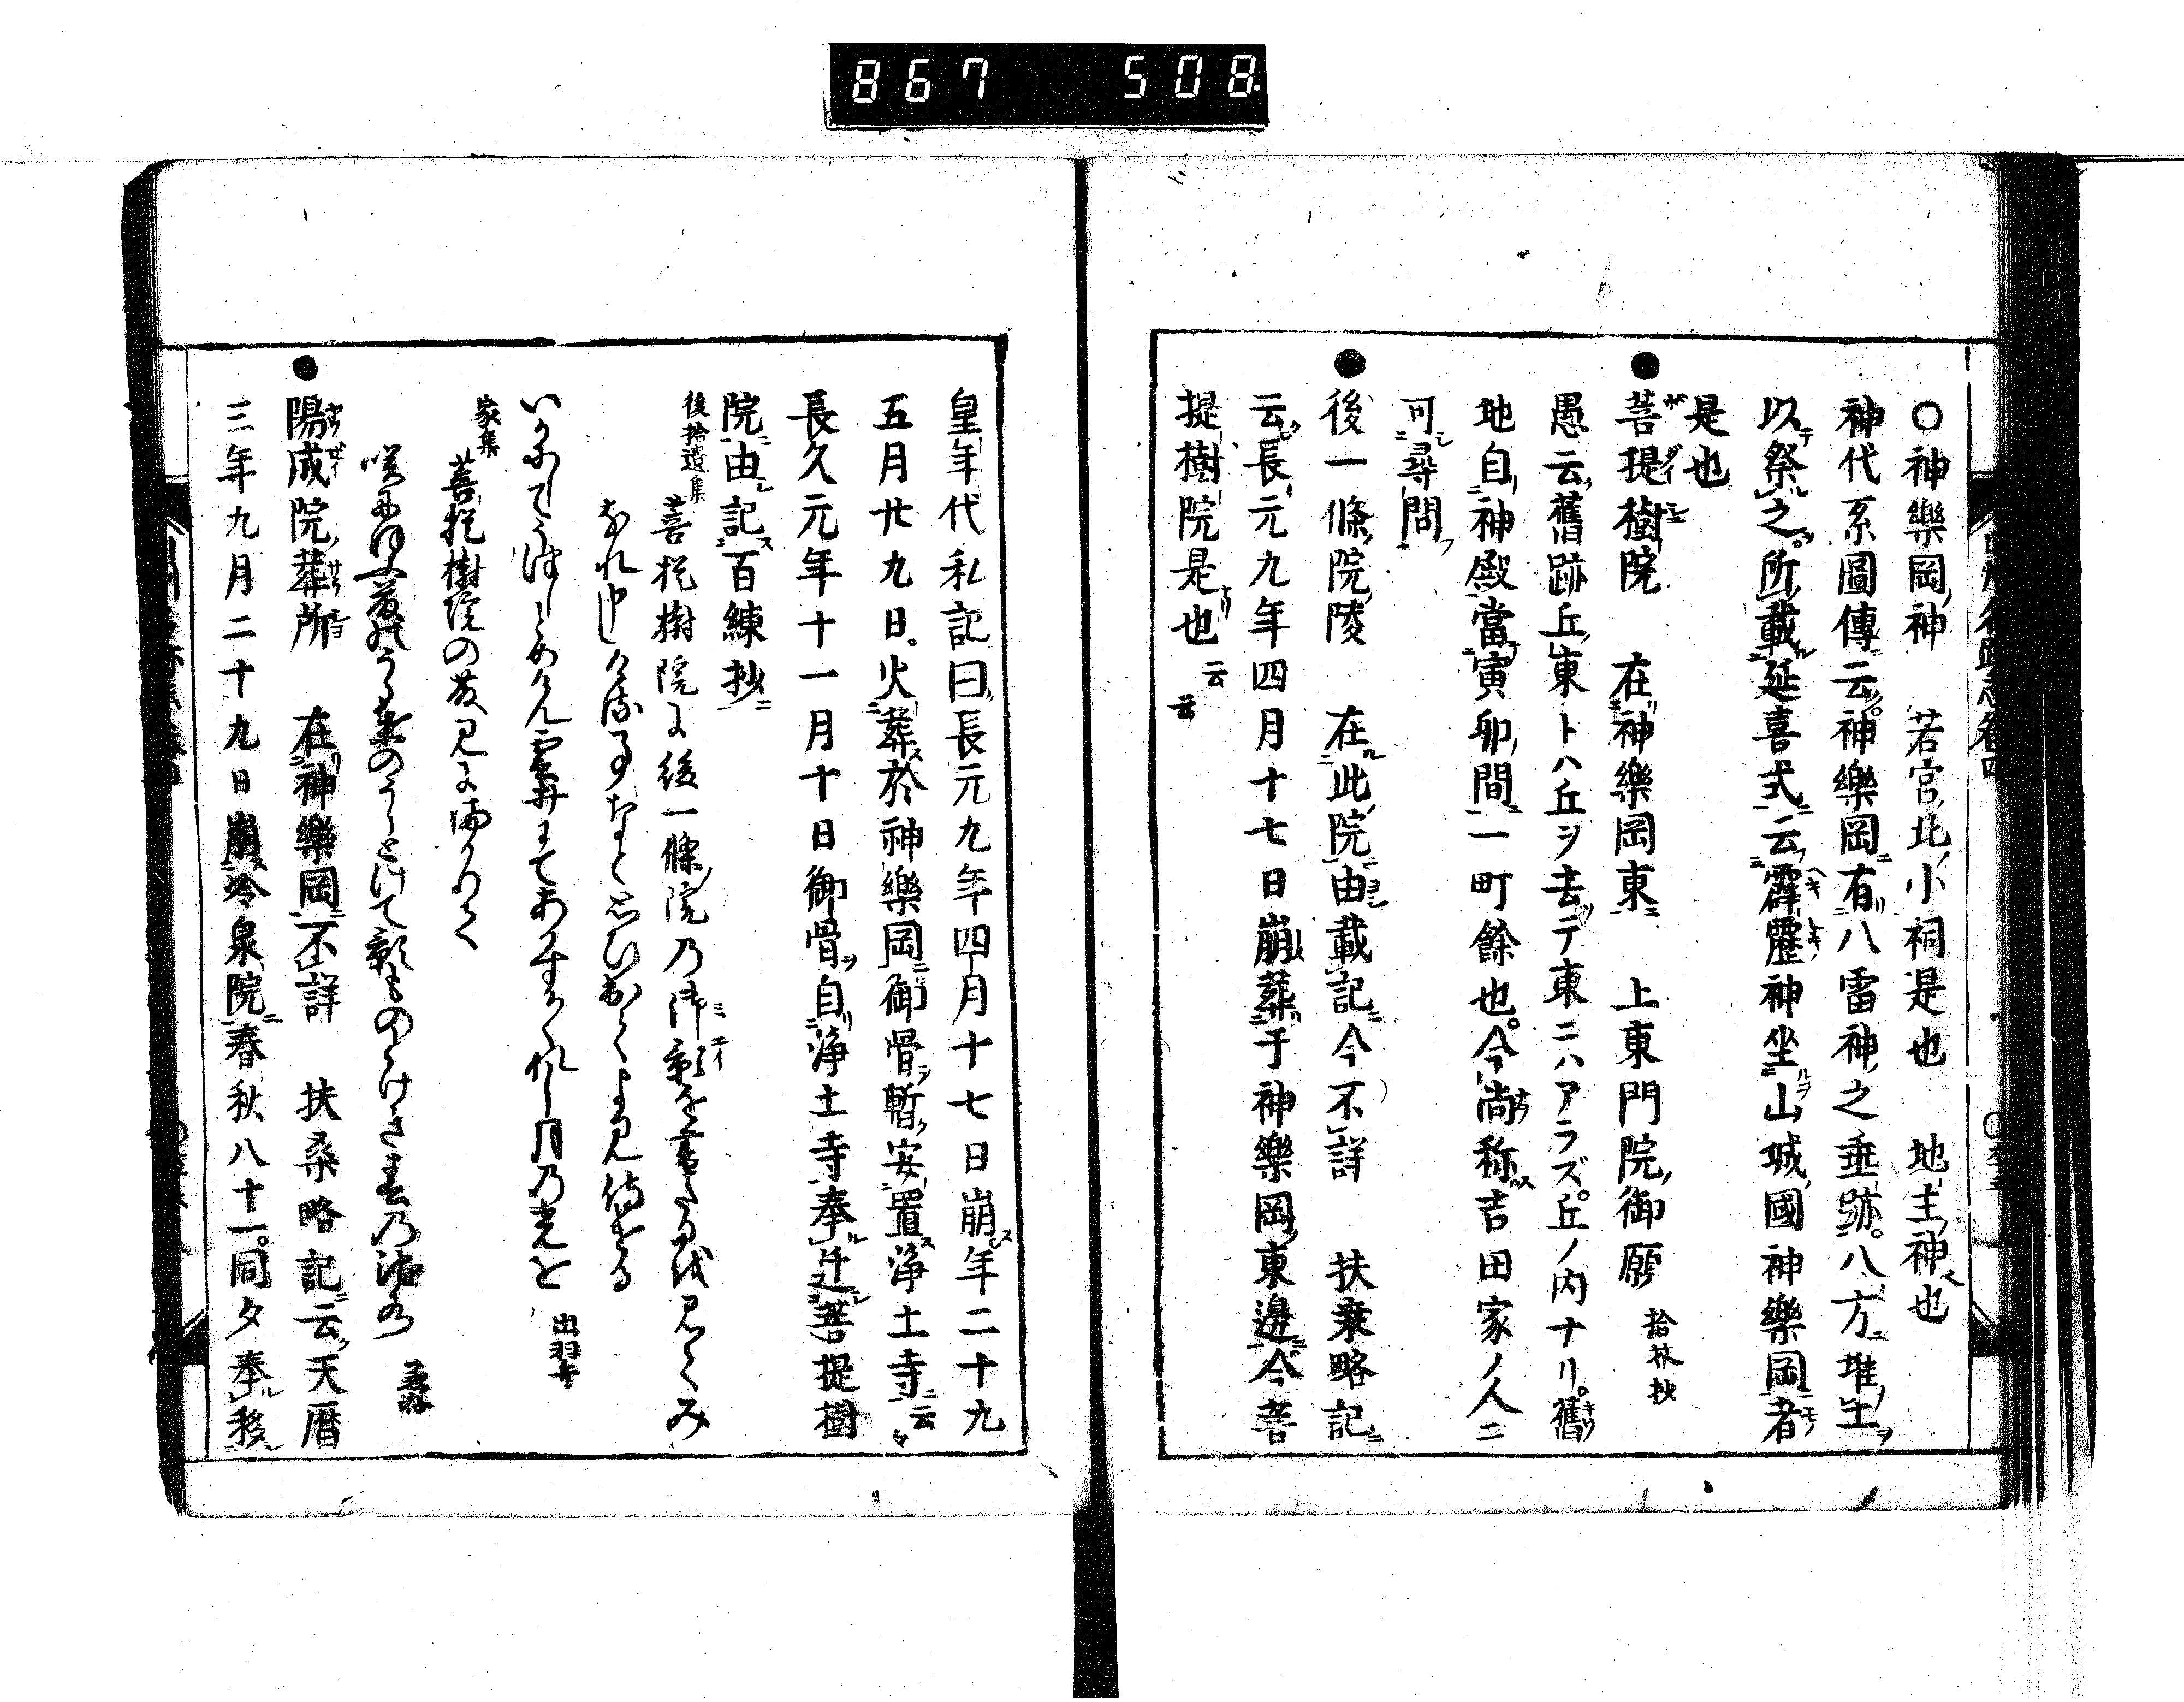 867 508
○神樂岡神 若宮北小祠是也 地主神也
神代系圖傳云神樂岡有八雷神之垂跡。八方堆土
以祭之。所載延喜式云霹靂神坐山城國神樂岡者
是也
●菩提樹院 在神樂岡東 上東門院御願 拾芥抄
愚云舊跡丘東トハ丘ヲ去テ東ニハアラズ。丘ノ内ナリ。舊
地自神殿當寅卯間一町餘也。今尚称吉田家ノ人ニ
可尋問
●後一條院陵 在此院由載記今不詳 扶桒略記
云。長元九年四月十七日崩葬于神樂岡東邊今菩
提樹院是也云云
皇年代私記曰長元九年四月十七日崩年二十九
五月廿九日。火葬於神樂岡御骨暫安置淨土寺云々
長久元年十一月十日御骨自淨土寺奉迁菩提樹
院由記百練抄
後拾遺集 菩提樹院に後一條院乃御影を書たるを見てみ
なれ申しける事など思ひ出てよみ侍ける
いかにてうつしとめけん雲井にてあかすかくれし月乃光を 出羽弁
家集 菩提樹院の花見にまかりて
●陽成院葬所 在神樂岡不詳 扶桑略記云天暦
三年九月二十九日崩冷泉院春秋八十一。同夕奉移